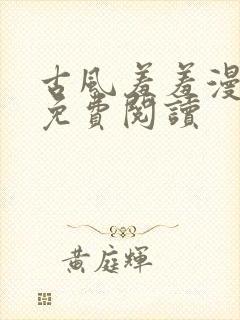 古風羞羞漫
免費閱讀
黃庭輝